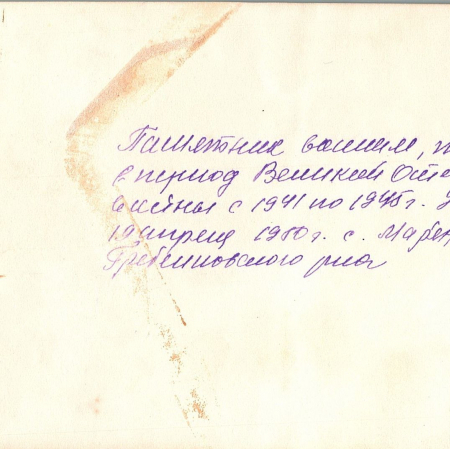 Памятник воинам, п
в период Великой Оте
войны с 1941 по 1945 г.
19 апреля 1980 г. с.
Гребенковского р-на